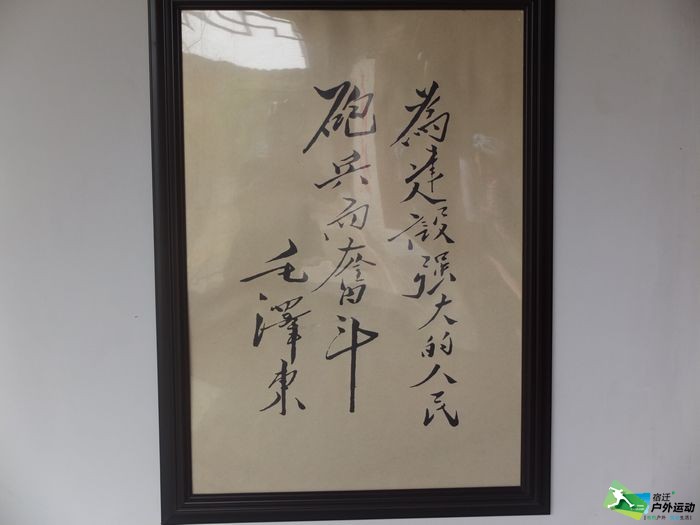 為建設强大的人民
砲兵而奮斗
毛澤東
宿迁
户外运动